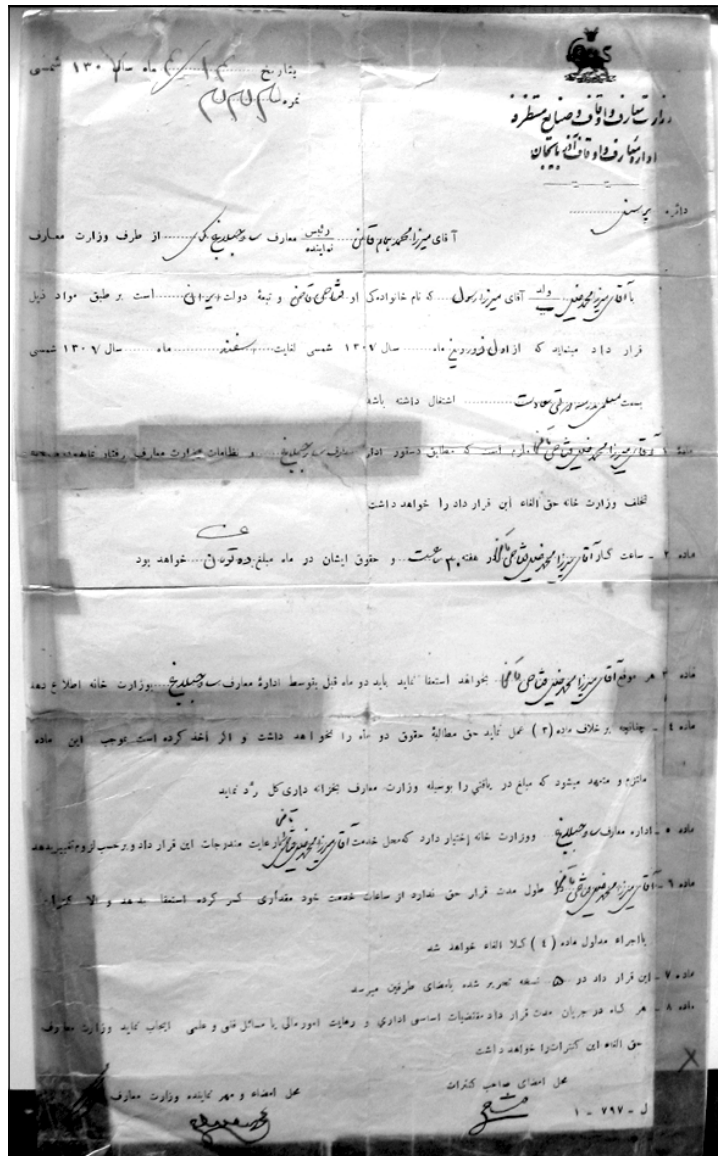 بتاریخ ۱۳ ماه سال ۱۳۰ شمسی
نمره
وزارت معارف و اوقاف و صنایع مستظرفه
اداره معارف و اوقاف آذربایجان
دائره پرسنل
آقای میرزا محمد قاضی رئیس نماینده معارف ساوجبلاغ مکری از طرف وزارت معارف
با آقای میرزا محمد خلیل ولد آقای میرزا رسول که نام خانوادگی او فتاحی قاضی و تبعهٔ دولت ایرانی است بر طبق مواد ذیل
قرار داد مینماید که از اول فروردین ماه سال ۱۳۰۷ شمسی لغایت اسفند ماه سال ۱۳۰۷ شمسی
بسمت معلمی مدرسه سعادت اشتغال داشته باشد
مادهٔ ۱ آقای میرزا محمد خلیل فتاحی قاضی ملزم است که مطابق دستور اداره معارف ساوجبلاغ و نظامات وزارت معارف رفتار نماید در صورت
تخلف وزارت خانه حق الغاء این قرار داد را خواهد داشت
ماده ۲ - ساعت کار آقای میرزا محمد خلیل فتاحی قاضی در هفته ۳۰ ساعت و حقوق ایشان در ماه مبلغ ده تومان خواهد بود
ماده ۳ هر موقع آقای میرزا محمد خلیل فتاحی قاضی بخواهد استعفا نماید باید دو ماه قبل بتوسط ادارهٔ معارف ساوجبلاغ بوزارت خانه اطلاع دهد
ماده ٤ - چنانچه بر خلاف ماده (۳) عمل نماید حق مطالبهٔ حقوق دو ماه را نخواهد داشت و اگر اخذ کرده است بموجب این ماده
ملتزم و متعهد میشود که مبلغ دریافتی را بوسیله وزارت معارف بخزانه داری کل رد نماید
ماده ٥ - اداره معارف ساوجبلاغ ووزارت خانه اختیار دارد که محل خدمت آقای میرزا محمد خلیل فتاحی قاضی را با رعایت مندرجات این قرار داد و بر حسب لزوم تغییر بدهد
ماده ٦ - آقای میرزا محمد خلیل فتاحی قاضی در طول مدت قرار حق ندارد از ساعات خدمت خود مقداری کسر کرده استعفا بدهد و الا کنترات
بااجراء مدلول ماده (٤) کلا الغاء خواهد شد
ماده ۷ - این قرار داد در ۵ نسخه تحریر شده بامضای طرفین میرسد
ماده ۸ - هر گاه در جریان مدت قرار داد مقتضیات اساسی اداری و رعایت امور مالی یا مسائل فنی و علمی ایجاب نماید وزارت معارف
حق الغاء این کنترات را خواهد داشت
محل امضای صاحب کنترات
محل امضاء و مهر نماینده وزارت معارف
ل - ۷۹۷ - ۱